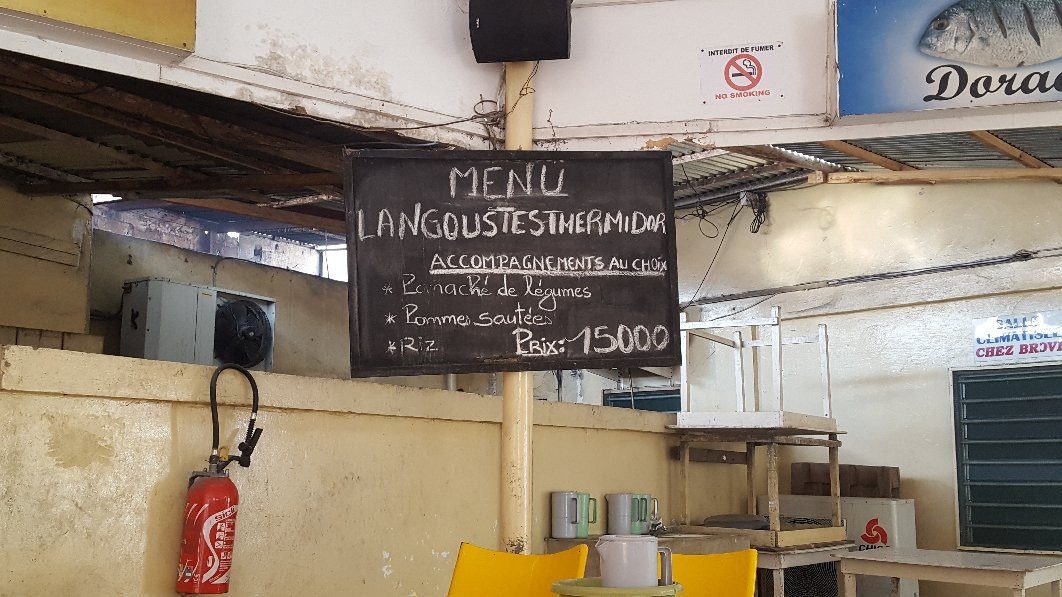 INTERDIT DE FUMER
NO SMOKING
MENU
LANGOUSTES THERMIDOR
ACCOMPAGNEMENTS AU CHOIX
* Panaché de légumes
* Pommes sautées
* Riz
PRIX: 15000
SALLE
CLIMATISEE
CHEZ BROVI